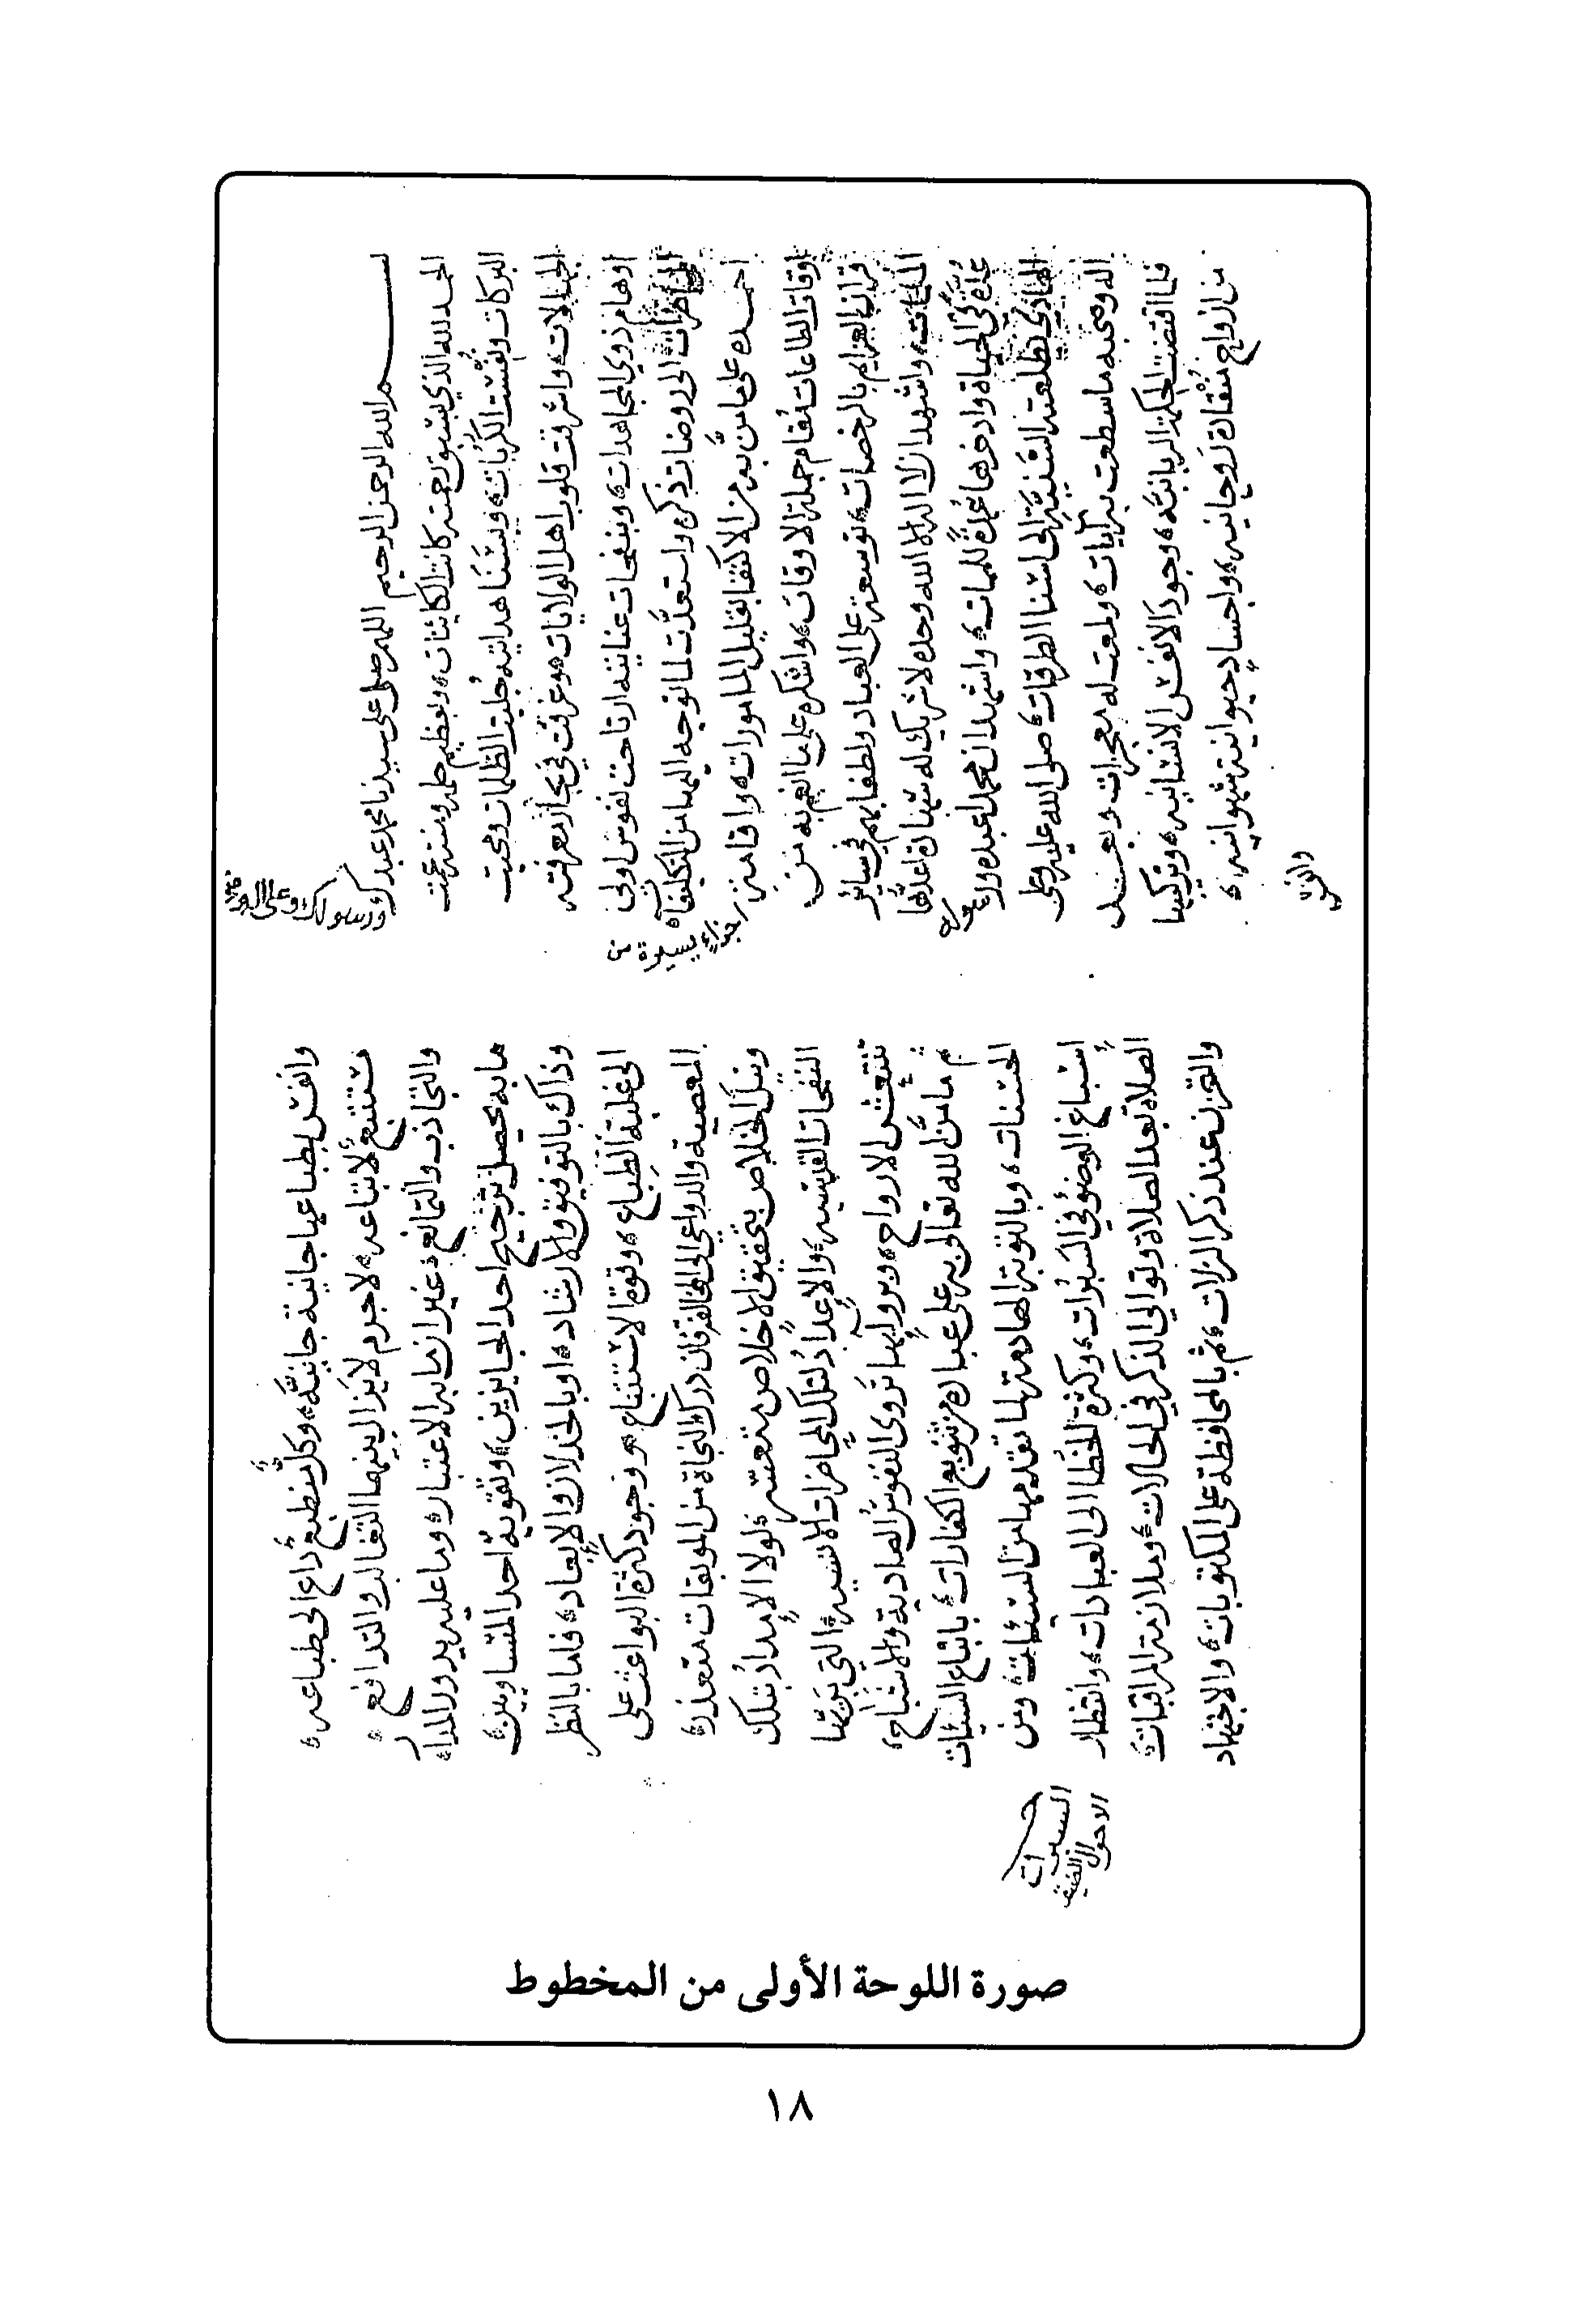 بسم الله الرحمن الرحيم اللهم صل على سيدنا محمد عبدك
ورسولك وعلى
الحمد لله الذي بسبق نعمته كانت الكائنات، وبعظيم حلمه ومنته عمت
البركات ونفست الكربات، وبسنا هدايته جليت الظلمات ومحيت
الجهالات، واشرقت قلوب اهل الولايات، وغرقت في بحار معرفته
اوهام ذوي المجاهدات، وبنفحات عنايته ارتاحت نفوس اولى
الى روضات ذكره واستعدت لما توجه اليها من التكليفات
احمده على ما من به من الاكتفا بقليل المامورات، واقامته
اوقات الطاعات مقام جملة الاوقات، واشكره على ما انعم به من
قران العزايم بالرخصات، توسعة على العباد ولطفا بهم في ساير
واشهد ان لا اله الا الله وحده لا شريك له شهادة اعدها
عدة في الحياة وادخرها عمدة للممات، واشهد ان محمدا عبده ورسوله
الهادي بطلعته السنية الى اسنا الطرقات، صلى الله عليه وعلى
اله وصحبه ما سطعت به آيات، ولمعت له معجزات وبعد
فلما اقتضت الحكمة الربانية، وجود الانفس الانسانية، وتركيبها
من ارواح منقادة روحانية، واجساد حيوانية شهوانية،
وانفس
وانفس بطباعها جانية جانية، وكل منطبع داع الى طباعه،
مستتبع لاتباعه، لا جرم لا يزال بينهما التغالب والتدافع،
والتجاذب والتمانع، غير ان ما به الاعتبار، وما عليه يدور المدار،
ما به يحصل ترجيح احد الجايزين، وتقوية احد المتساويين،
وذاك بالتوفيق والارشاد، او بالخذلان والابعاد، فاما بالنظر
الى غلبة الطباع، وقوة الاستتباع، ووجود كثرة البواعث على
المعصية والدواعي الى المخالفة فان درك النجاة من الموبقات متعذر،
ونيل الخلاص بتحقيق الاخلاص متعسر، لولا الامداد بتلك
النفحات القدسية، والاعداد لتلك المحاضرات الانسية، التي بريها
تنتعش الارواح، وبرواها تروى النفوس الصادية والاشباح،
ثم ما من الله تعالى به على عباده من تنويع الكفارات، باتباع السيئات
الحسنات، وبالتوبة الهادمة لما تقدمها من السيئات، ومن
اسباغ الوضوء في السبرات، وكثرة الخطا الى العبادات، وانتظار
الصلاة بعد الصلاة وتوالي الذكر في الحالات، وملازمة المراقبات
والتحزن عند ذكر الزلات، ثم بالمحافظة على المكتوبات، والاجتهاد
السبرات
الاحوال
صورة اللوحة الأولى من المخطوط
١٨